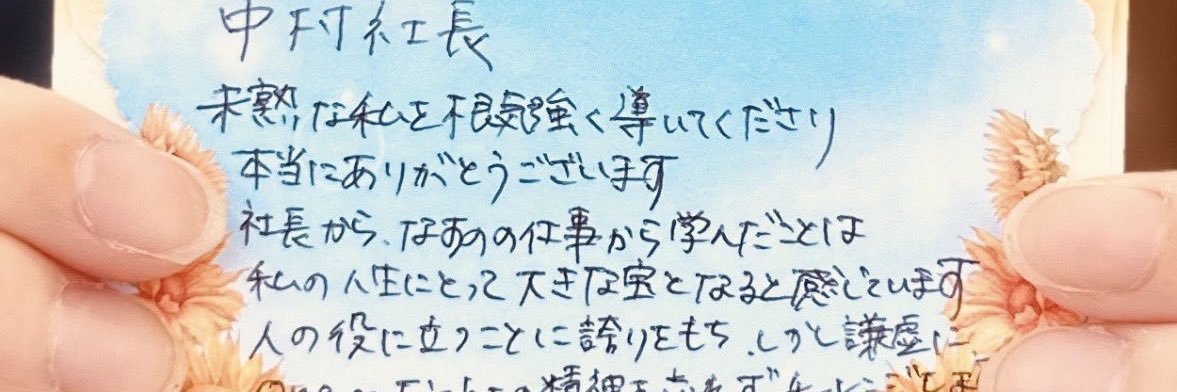 中村社長
未熟な私を根気強く導いてくださり
本当にありがとうございます
社長から、なおのの仕事から学んだことは
私の人生にとって大きな宝となると感じています
人の役に立つことに誇りをもち、しかし謙虚に、
の精神を忘れずチャレンジし